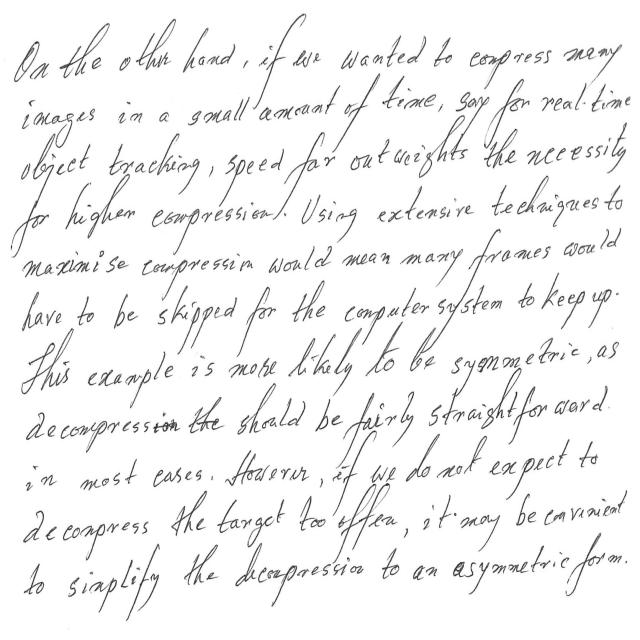 On the other hand, if we wanted to compress many
images in a small amount of time, say for real-time
object tracking, speed far outweights the necessity
for higher compression. Using extensive techniques to
maximise compression would mean many frames would
have to be skipped for the computer system to keep up.
This example is more likely to be symmetric, as
decompression the should be fairly straightforward
in most cases. However, if we do not expect to
decompress the target too often, it may be convinient
to simplify the decompression to an asymmetric form.